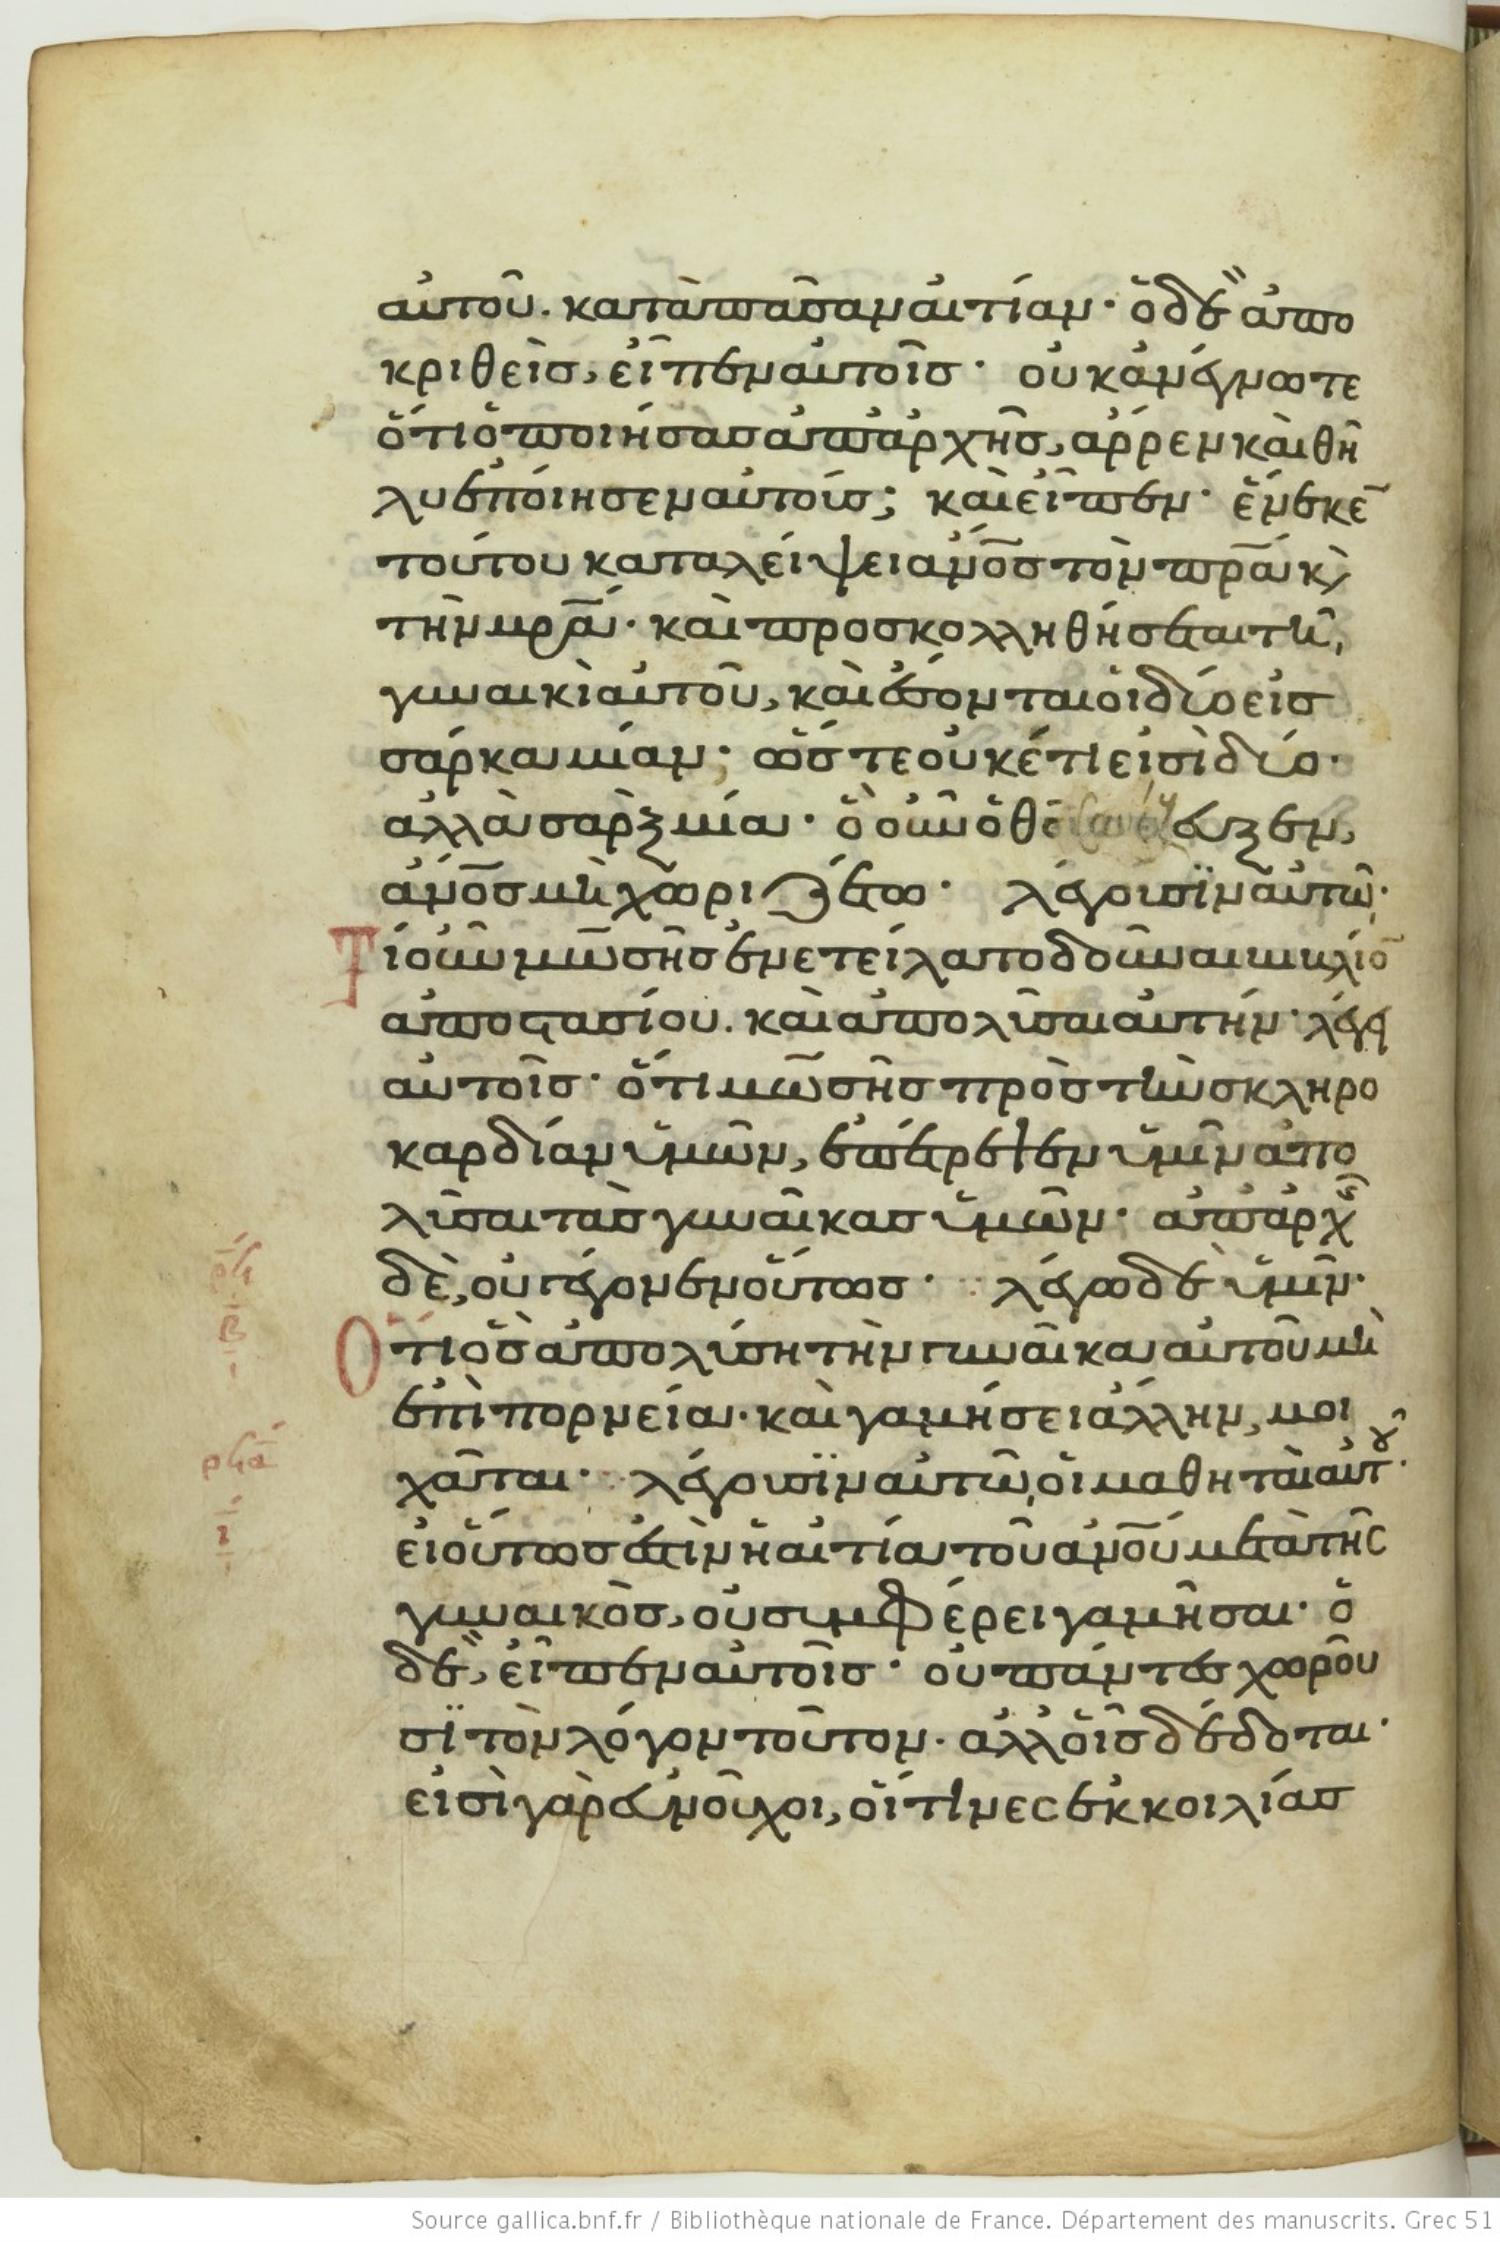 αὐτοῦ. κατὰ πᾶσαν αἰτίαν· ὁ δὲ ἀπο
κριθεὶς, εἶπεν αὐτοῖς· οὐκ ἀνέγνωτε
ὅτι ὁ ποιήσας ἀπ' ἀρχῆς, ἄρρεν καὶ θῆ
λυ ἐποίησεν αὐτούς; καὶ εἶπεν· ἕνεκε
τούτου καταλείψει ἄνος τὸν πρα κ
τὴν μρα· καὶ προσκολληθήσεται τῆ
γυναικὶ αὐτοῦ, καὶ ἔσονται οἱ δύο εἰς
σάρκα μίαν· ὥστε οὐκέτι εἰσὶ δύο·
ἀλλὰ σὰρξ μία· ὃ οὖν ὁ θς συνέζευξεν,
ἄνος μὴ χωριζέτω· λέγουσϊν αὐτῶ·
Τί οὖν μωσῆς ἐνετείλατο δοῦναι βιβλίο
ἀποστασίου. καὶ ἀπολῦσαι αὐτήν· λέγει
αὐτοῖς· ὅτι μωσῆς πρὸς τὴν σκληρο
καρδίαν ὑμῶν, ἐπέτρεψεν ὑμῖν ἀπο
λῦσαι τὰς γυναῖκας ὑμῶν· ἀπ' ἀρχῆς
δὲ, οὐ γέγονεν οὕτως· λέγω δὲ ὑμῖν·
Ὅτι ὃς ἀπολύση τὴν γυναῖκα αὐτοῦ μὴ
ἐπὶ πορνεία· καὶ γαμήσει ἄλλην, μοι
χᾶται· λέγουσϊν αὐτῶ, οἱ μαθηταὶ αὐτοῦ·
εἰ οὕτως ἐστὶν ἡ αἰτία τοῦ ἀνου μετὰ τῆς
γυναικὸς, οὐ συμφέρει γαμῆσαι· ὁ
δὲ, εἶπεν αὐτοῖς· οὐ πάντες χωροῦ
σϊ τὸν λόγον τοῦτον· ἀλλ' οἷς δέδοται·
εἰσὶ γὰρ εὐνοῦχοι, οἵτινες ἐκ κοιλίας
ρϟ
β
ρϟα
ι
Source gallica.bnf.fr / Bibliothèque nationale de France. Département des manuscrits. Grec 51